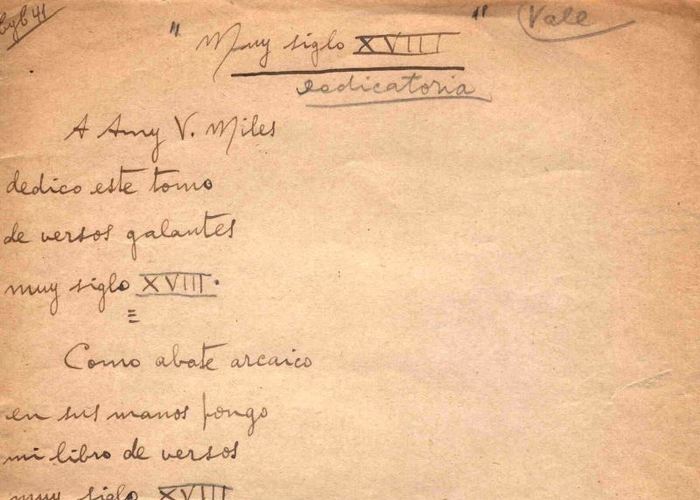 "Muy siglo XVIII"
Vale
dedicatoria
A Amy V. Miles
dedico este tomo
de versos galantes
muy siglo XVIII.
Como abate arcaico
en sus manos pongo
mi libro de versos
muy siglo XVIII